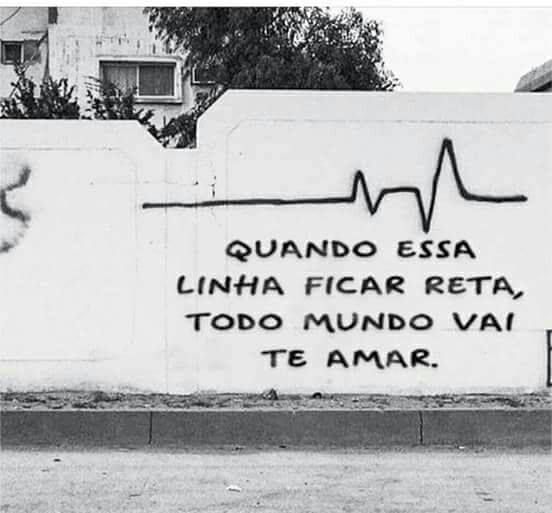 QUANDO ESSA
LINHA FICAR RETA,
TODO MUNDO VAI
TE AMAR.